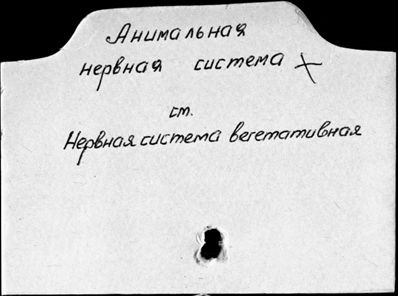 Анимальная
нервная система
см.
Нервная система вегетативная